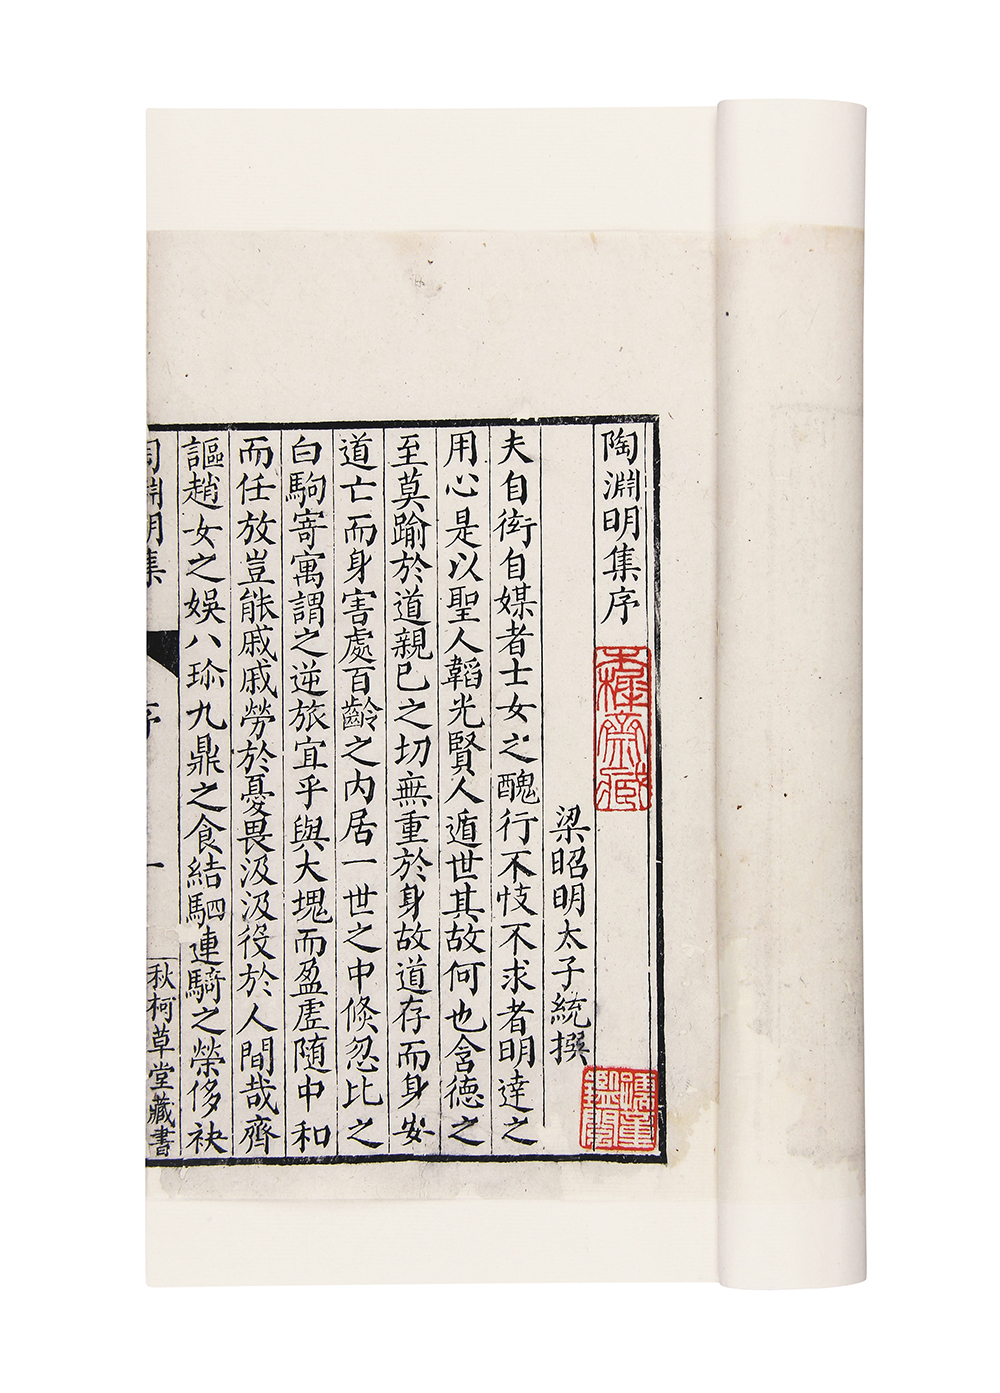 陶淵明集序
梁昭明太子統撰
夫自衒自媒者士女之醜行不忮不求者明達之
用心是以聖人韜光賢人遁世其故何也含德之
至莫踰於道親已之切無重於身故道存而身安
道亡而身害處百齡之內居一世之中倐忽比之
白駒寄寓謂之逆旅宜乎與大塊而盈虛隨中和
而任放豈能戚戚勞於憂畏汲汲役於人間哉齊
謳趙女之娛八珍九鼎之食結駟連騎之榮侈袂
陶淵明集
序
一
秋柯草堂藏書